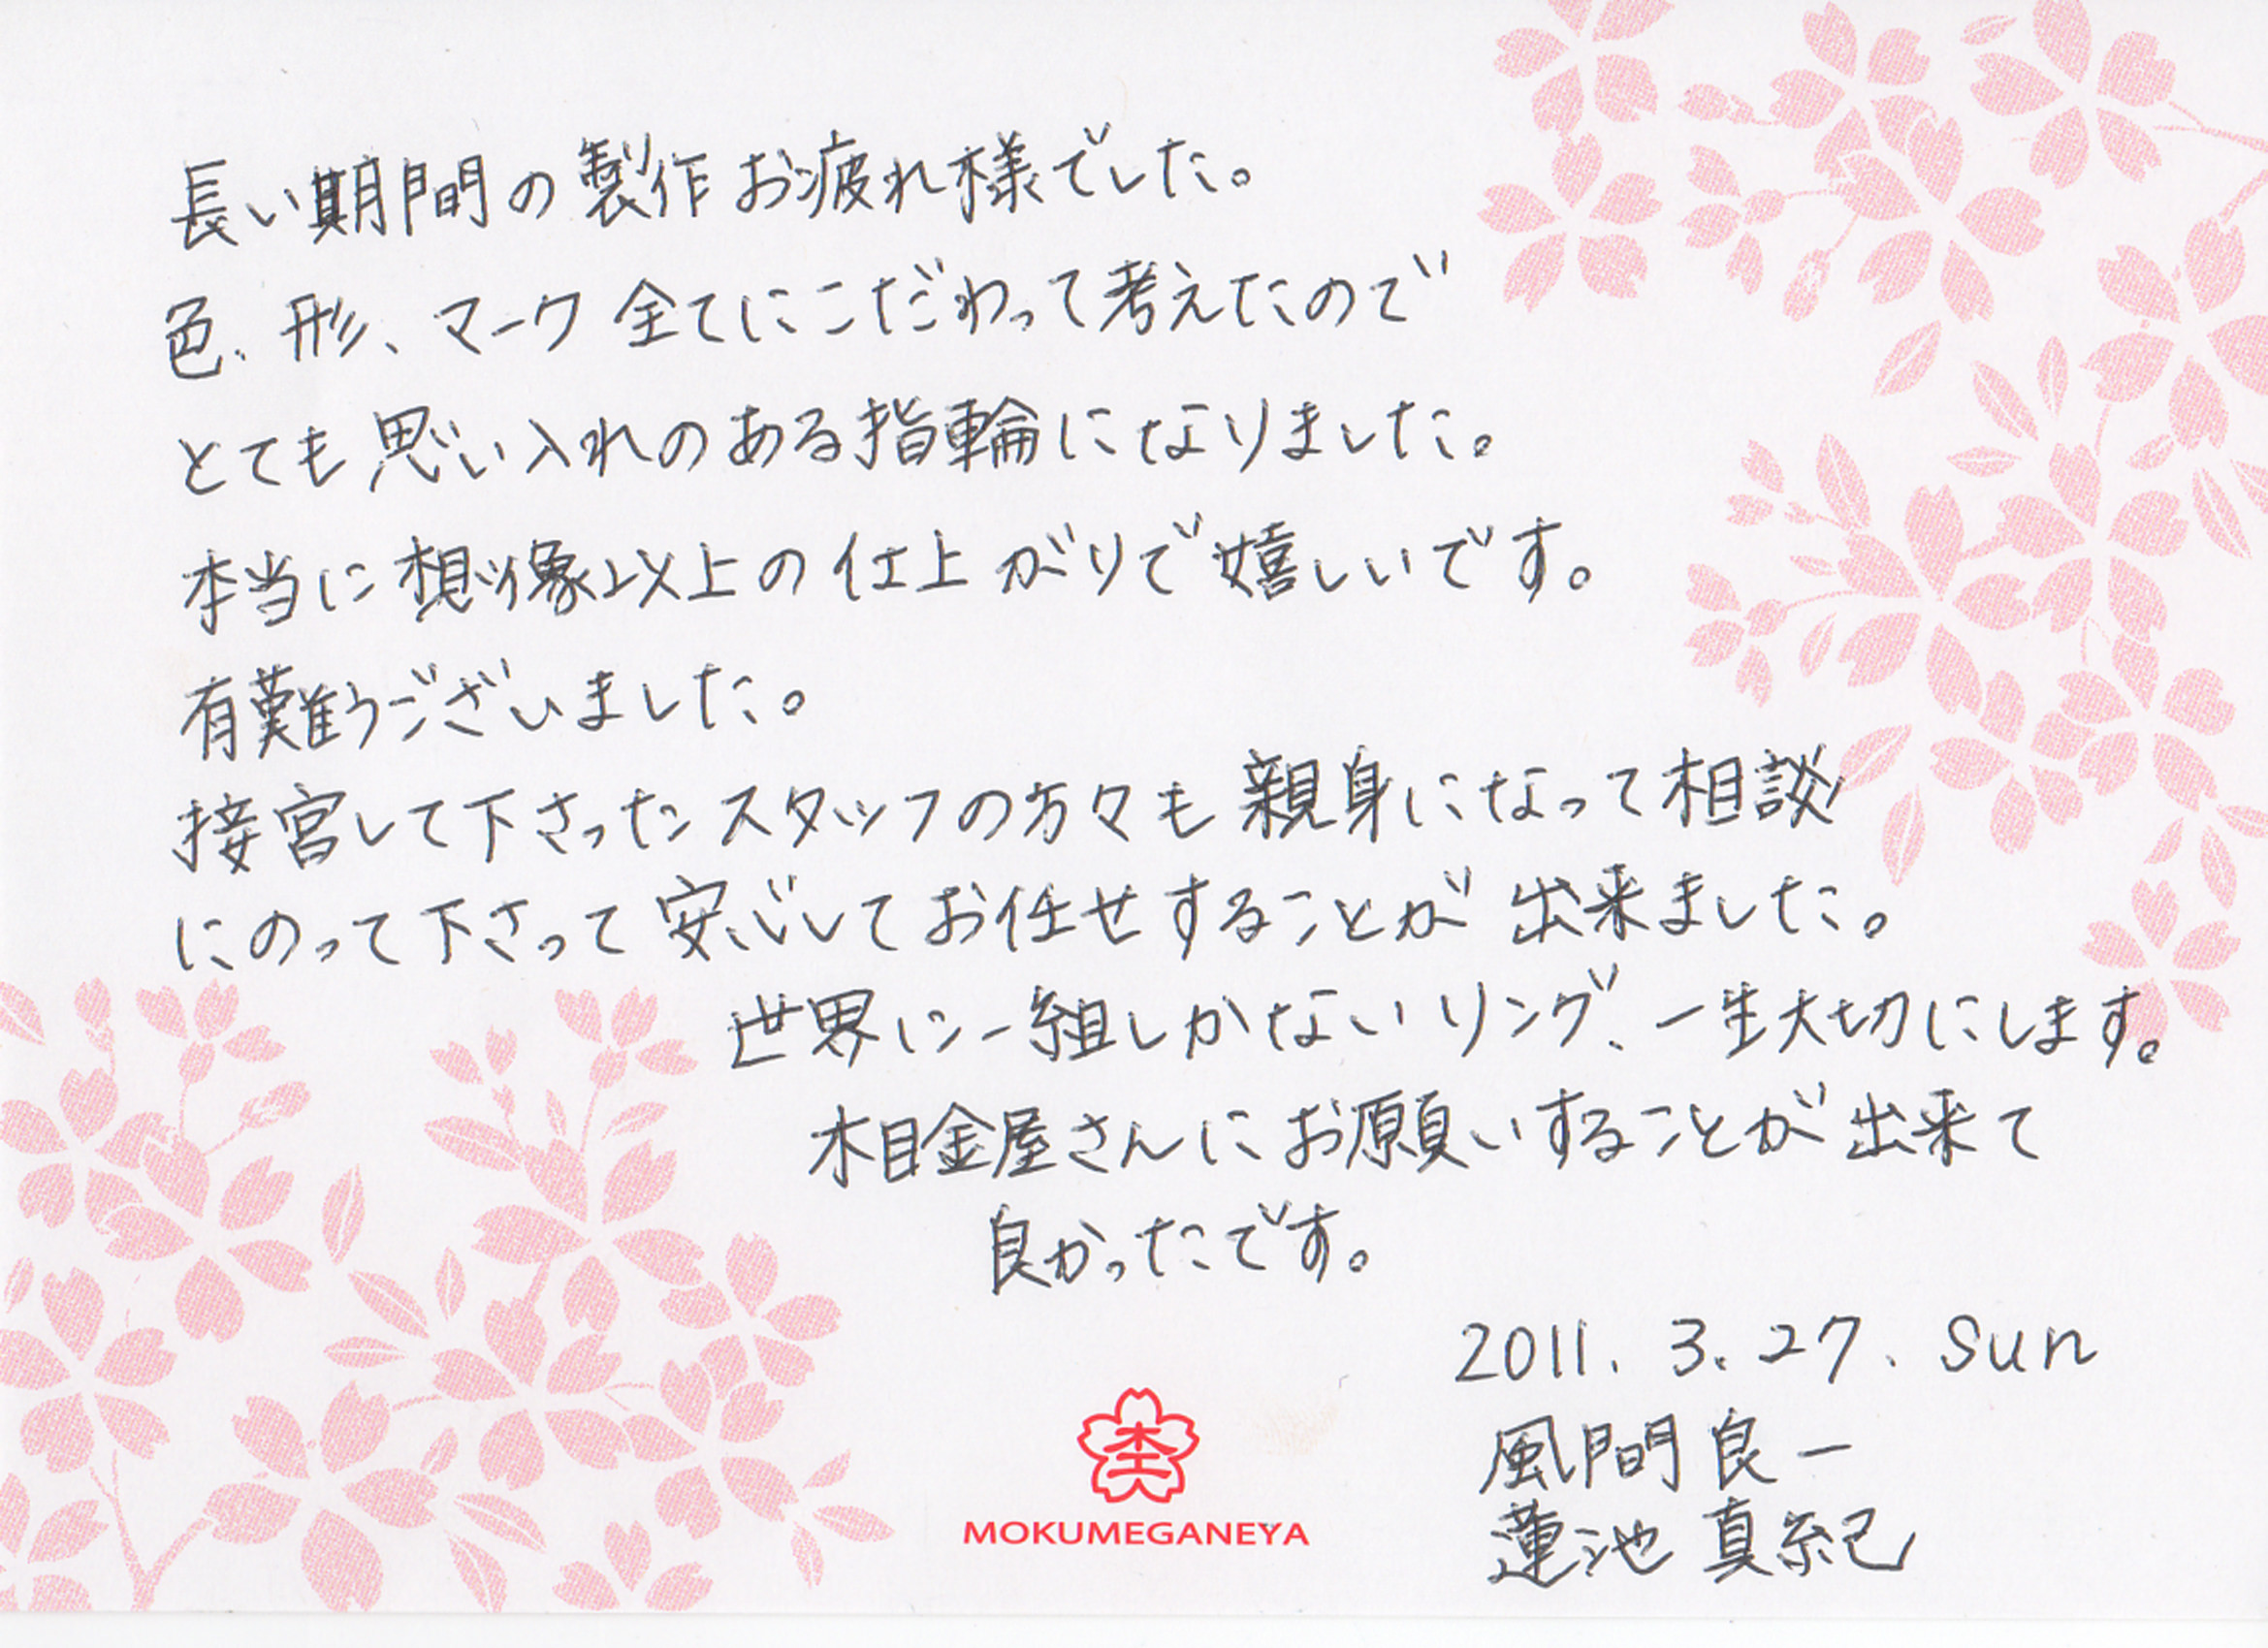 長い期間の製作お疲れ様でした。
色、形、マーク全てにこだわって考えたので
とても思い入れのある指輪になりました。
本当に想像以上の仕上がりで嬉しいです。
有難うございました。
接客して下さったスタッフの方々も親身になって相談
にのって下さって安心してお任せすることが出来ました。
世界に一組しかないリング、一生大切にします。
木目金屋さんにお願いすることが出来て
良かったです。
2011. 3. 27. Sun
風間良一
蓮池真紀
杢
MOKUMEGANEYA